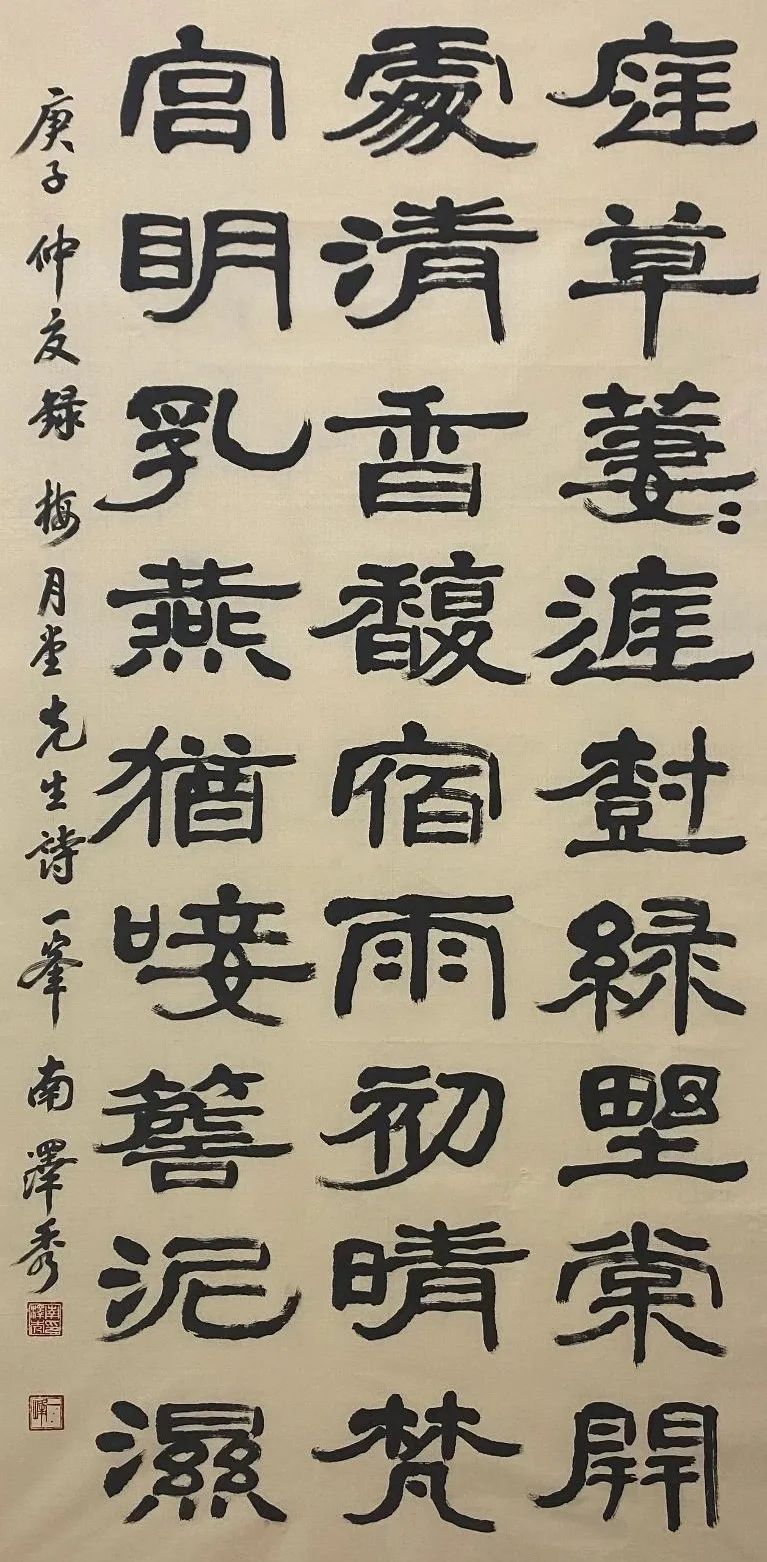 庭草萋〻涯尌綠野棠開
處清香馥宿雨初晴梵
宮明乳燕猶唼簷泥濕
庚子仲夏錄梅月堂先生詩一峯南澤秀